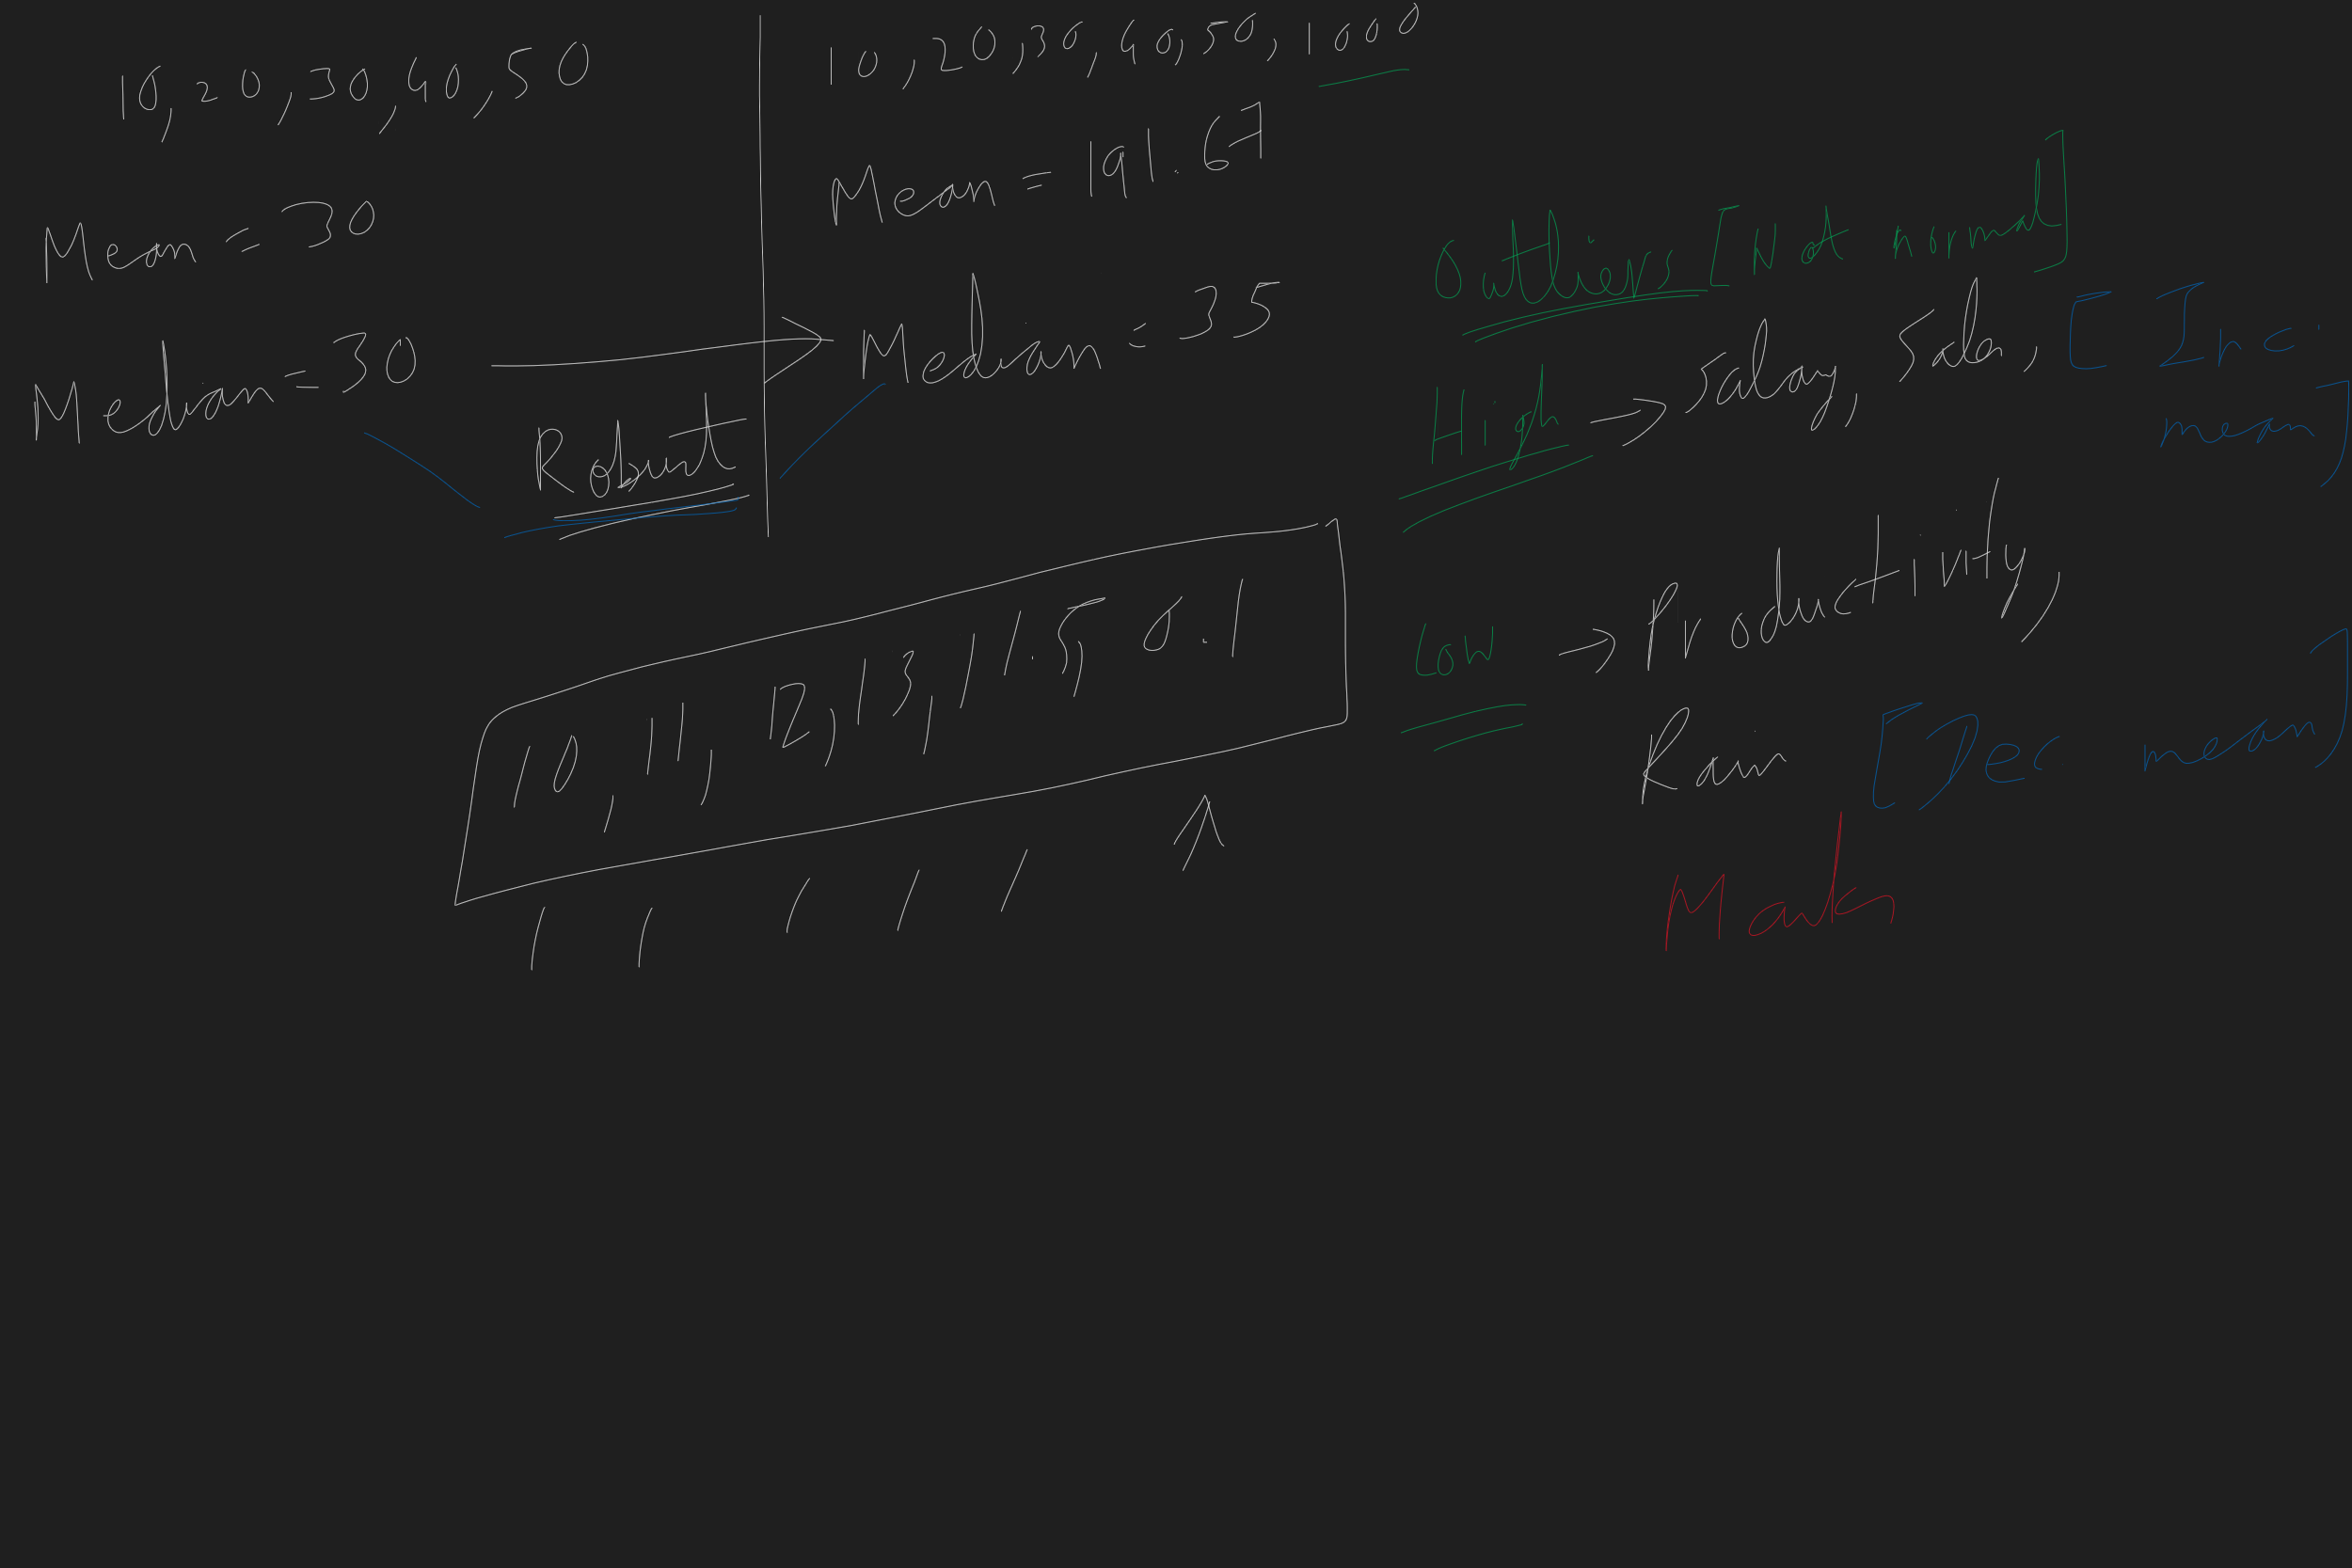 10, 20, 30, 40, 50
Mean = 30
Median = 30
Robust
10, 20, 30, 40, 50, 1000
Mean = 191.67
Median = 35
Outliers [Not normal]
High → Salary, Sales, [Inc. mean]
Low → Productivity,
Rain [Dec. mean]
Marks
10, 11, 12, 13, 11.5 0.1